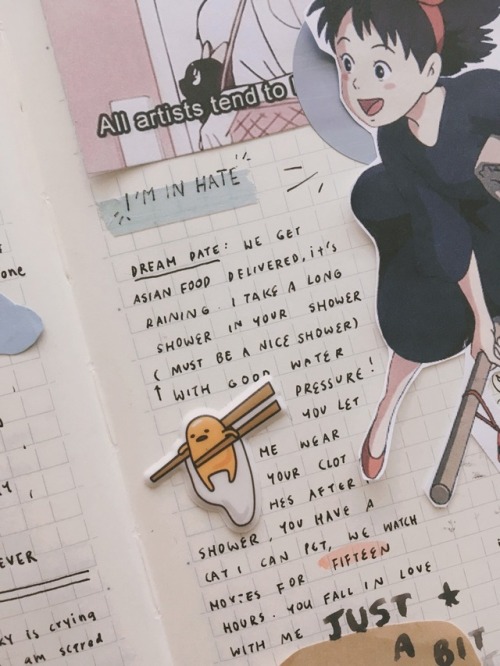 All artists tend to
I'M IN HATE
DREAM DATE: WE GET
ASIAN FOOD DELIVERED, it's
RAINING. I TAKE A LONG
SHOWER IN YOUR SHOWER
( MUST BE A NICE SHOWER)
↑ WITH GOOD WATER
PRESSURE!
YOU LET
ME WEAR
YOUR CLOT
HES AFTER
SHOWER, YOU HAVE A
CAT I CAN PET, WE WATCH
MOVIES FOR FIFTEEN
HOURS. YOU FALL IN LOVE
WITH ME JUST
A BIT
one
EVER
KY is crying
am scared